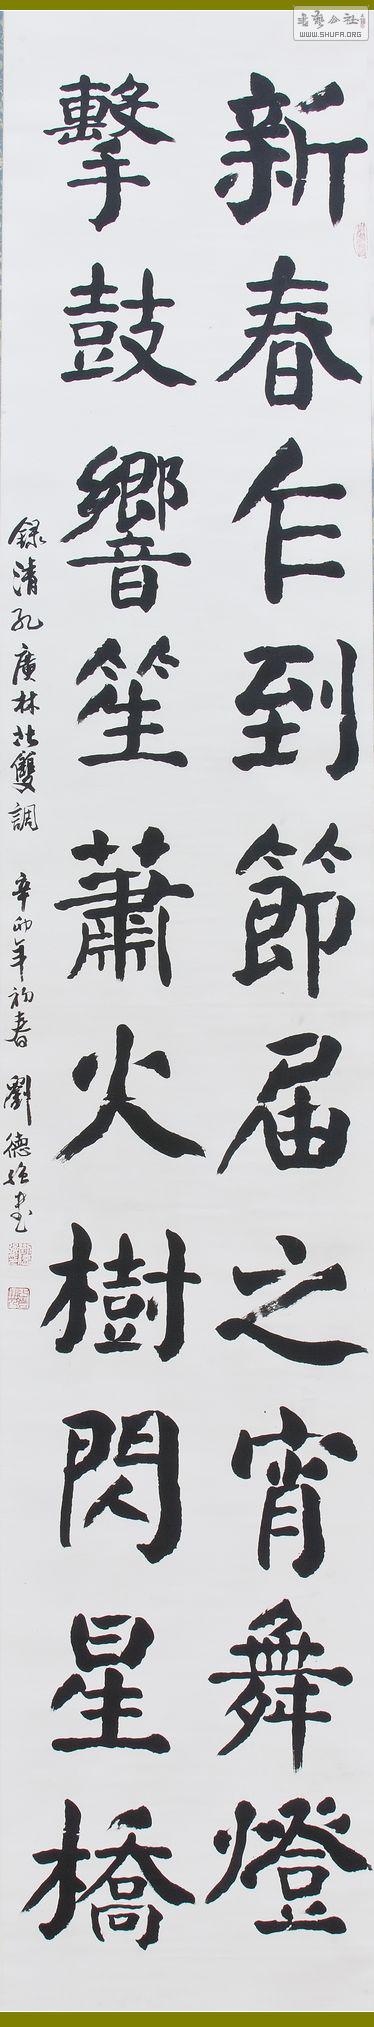 新春乍到節届之宵舞燈
擊鼓響笙蕭火樹閃星橋
錄清孔廣林北雙調 辛卯年初春 劉德 書
書藝公社
WWW.SHUFA.ORG